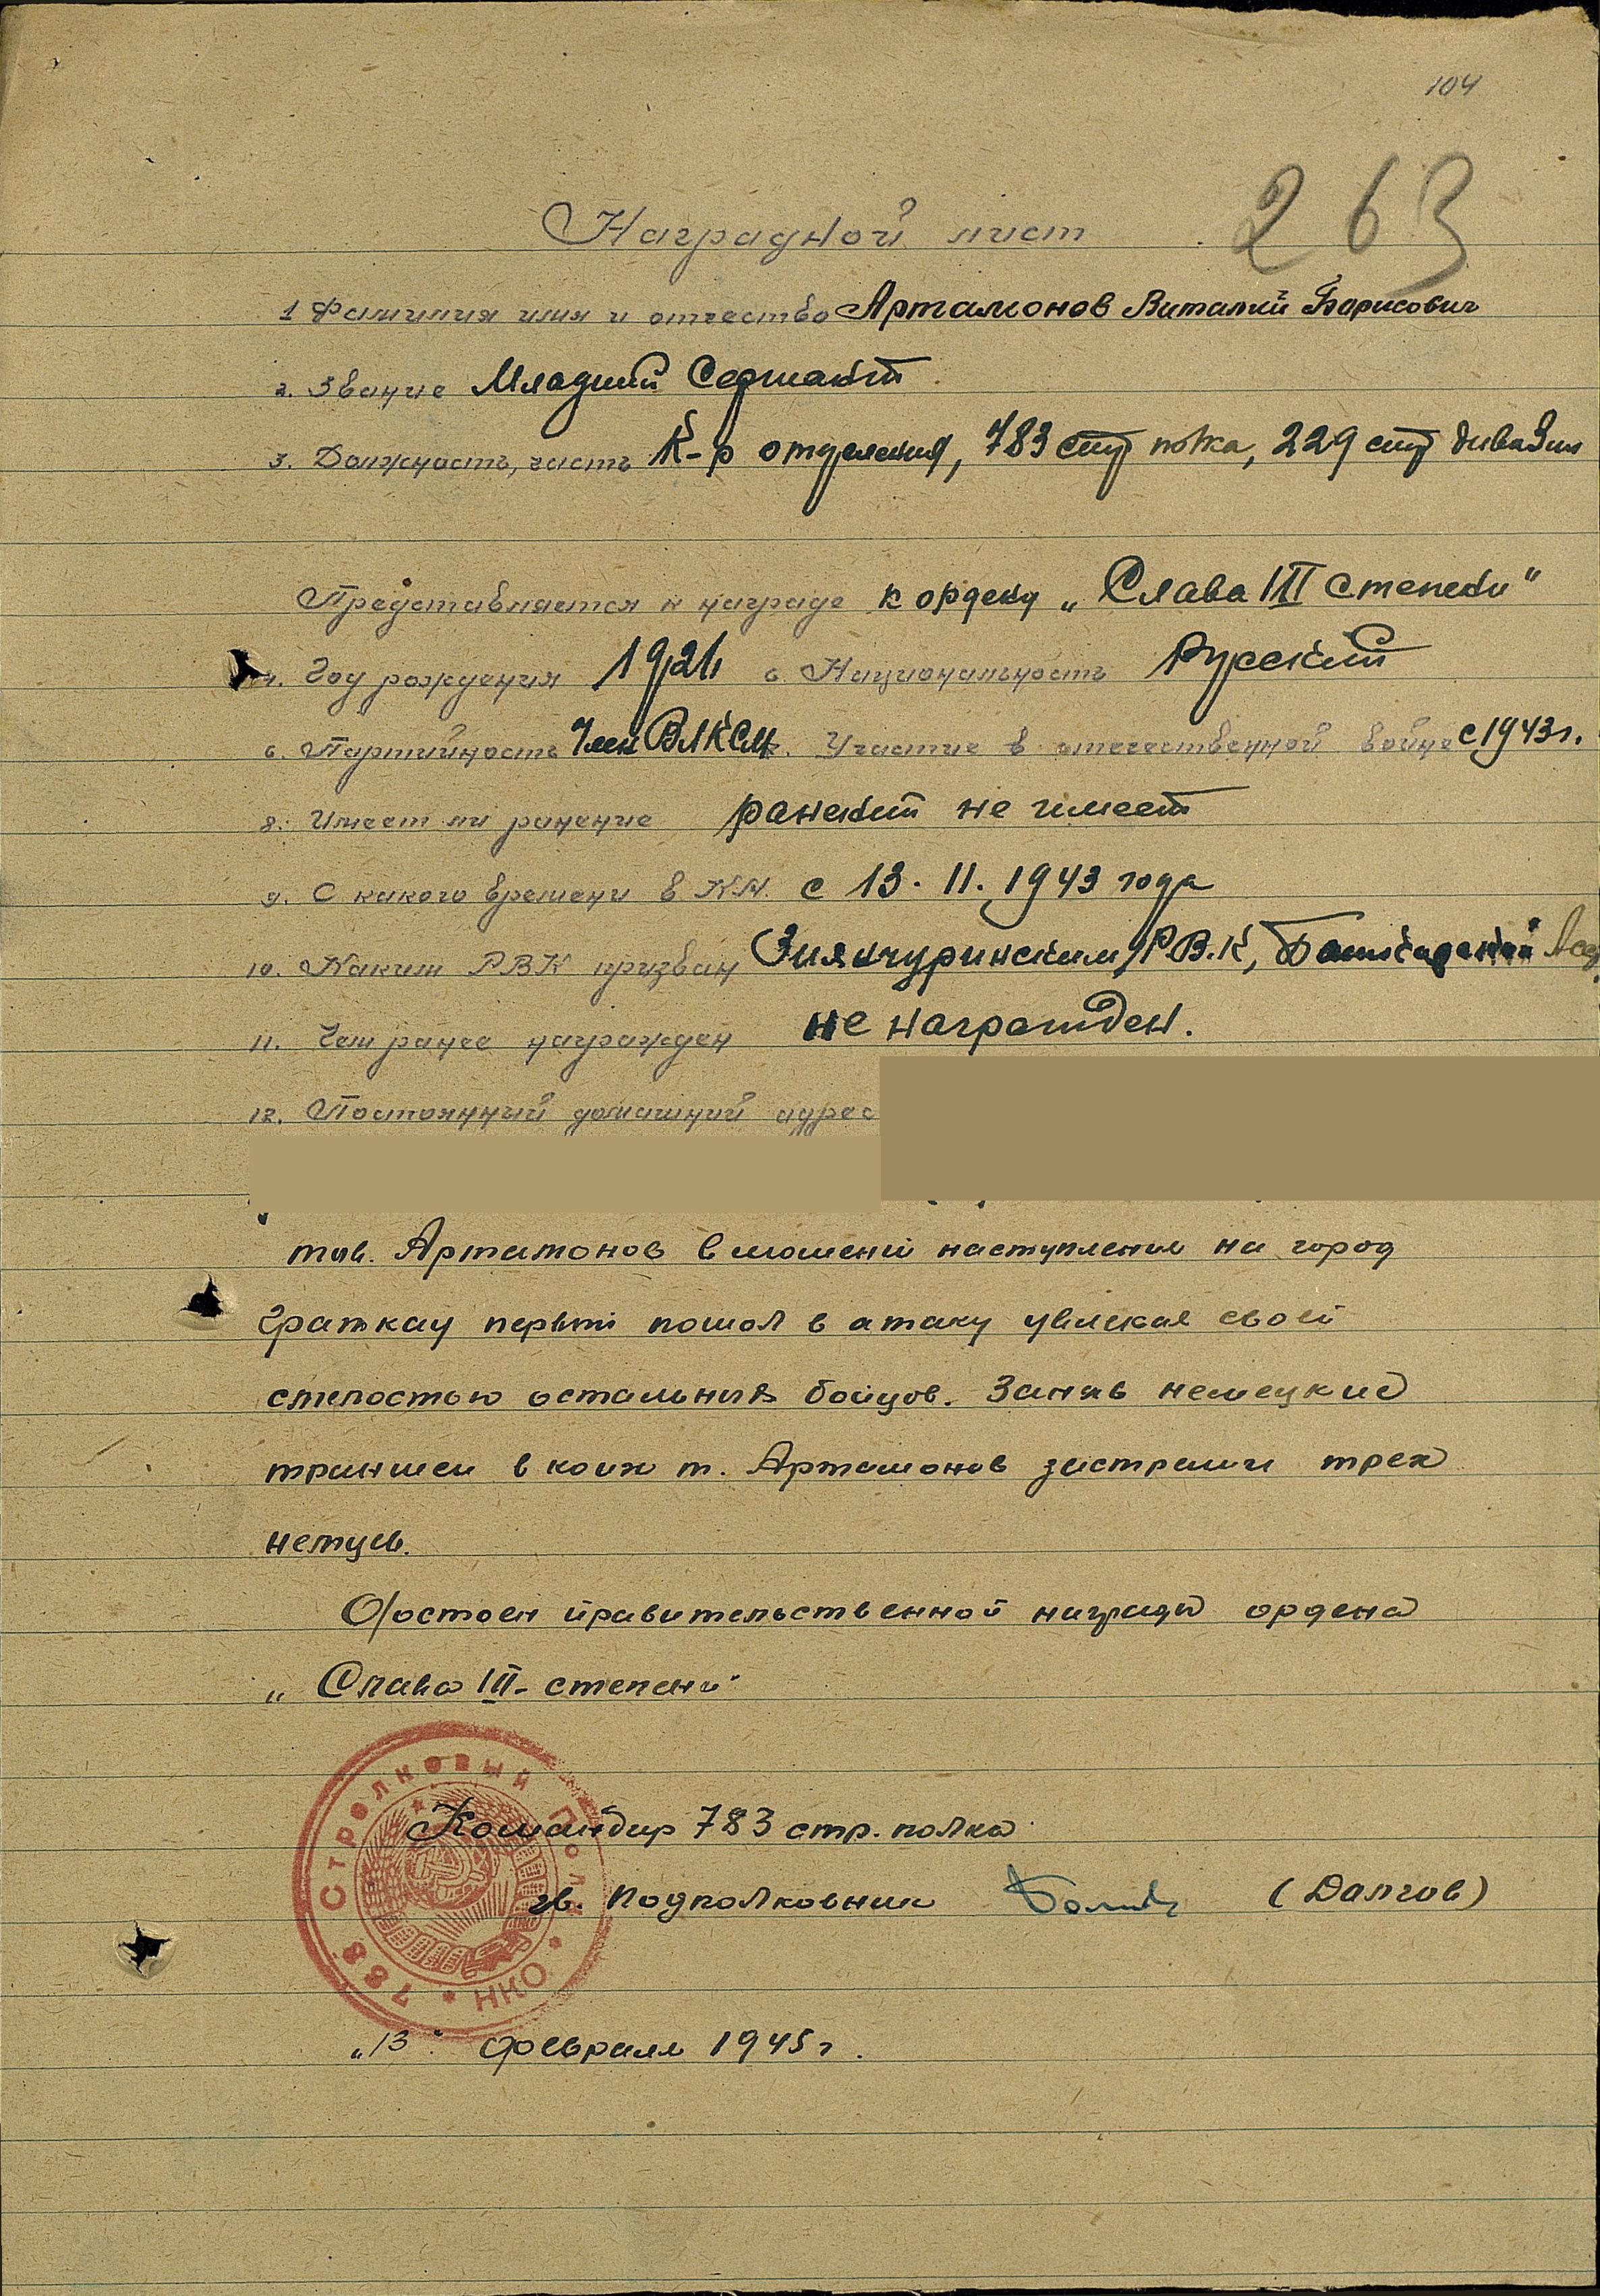 104
263
Наградной лист
1 Фамилия имя и отчество Артамонов Виталий Борисович
2. Звание Младший Сержант
3. Должность, часть К-р отделения, 783 стр полка, 229 стр дивизии
Представляется к награде к ордену „Слава III степени"
4. Год рождения 1921 Национальность Русский
6. Партийность Член ВЛКСМ. Участие в отечественной войне с 1943 г.
8. Имеет ли ранение ранений не имеет
9. С какого времени в КА. с 13. 11. 1943 года
10. Каким РВК призван Зиянчуринским РВ.К, Башкирской
11. Чем ранее награжден не награжден.
12. Постоянный домашний адрес
тов. Артамонов в момент наступления на город
Граткау первый пошол в атаку увлекая своей
смелостью остальных бойцов. Заняв немецкие
траншеи в коих т. Артамонов застрелил трех
немцев.
Достоен правительственной награды ордена
„Слава III-степени"
Командир 783 стр. полка
гв. Подполковник (Далгов)
„13" февраля 1945 г.
783 Стрелковый Полк * НКО *